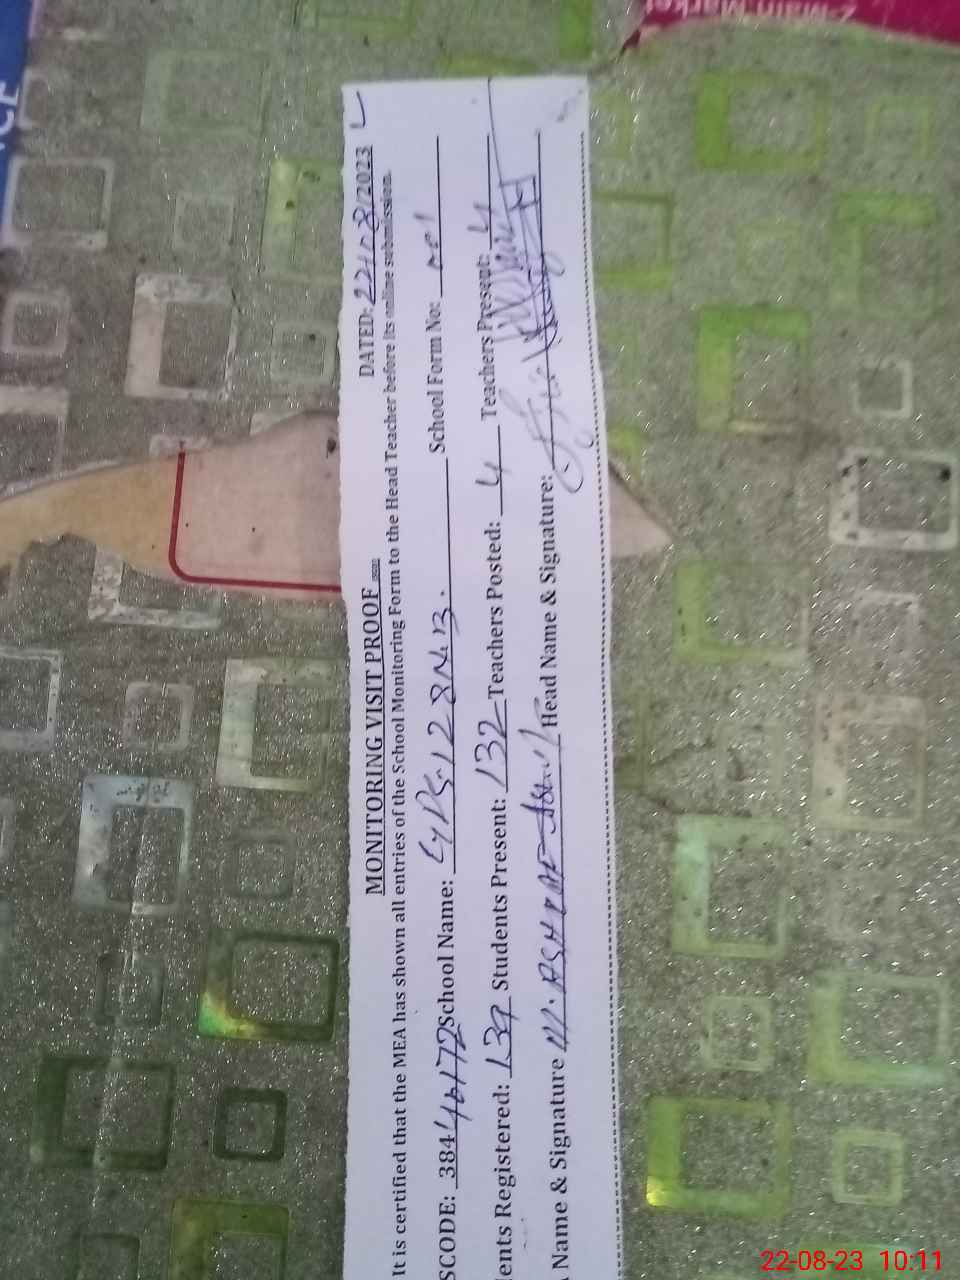 MONITORING VISIT PROOF
DATED: 22/08/2023
It is certified that the MEA has shown all entries of the School Monitoring Form to the Head Teacher before its online submission.
SCODE: 384 School Name: 128 N.B. School Form No:
ents Registered: 139 Students Present: 132 Teachers Posted: 4 Teachers Present: 4
Name & Signature M. ASHRAF Head Name & Signature:
2-Main Market
22-08-23 10:11